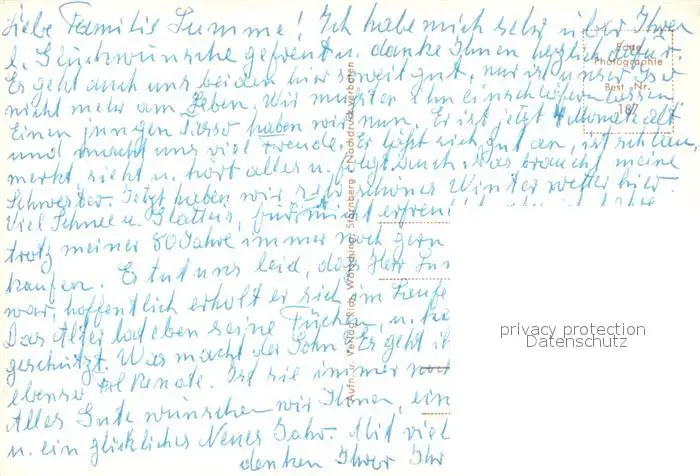 Liebe Familie Summe! Ich habe mich sehr über Ihre
l. Glückwünsche gefreut u. danke Ihnen herzlich dafür.
Es geht auch uns beiden hier soweit gut, nur ist unser
nicht mehr am Leben. Wir mussten ihn einschläfern lassen.
Einen jungen haben wir nun. Er ist jetzt 4 Monate alt
und macht uns viel Freude. Er läßt sich gut an, ist schlau,
merkt sieht u. hört alles u. folgt auch. Das braucht meine
Schwester. Jetzt haben wir sehr schönes Winterwetter hier.
Viel Schnee u. Glatteis, für mich
trotz meiner 80 Jahre immer noch gern
kaufen. Es tut uns leid, dass Herr
war, hoffentlich erholt er sich im Laufe
Das Alter hat eben seine Tücken, u.
geschützt. Was macht der Sohn? Es geht
ebenso Renate. Ist sie immer noch
Alles Gute wünschen wir Ihnen, ein
u. ein glückliches Neues Jahr. Mit viel
denken Ihrer Ihr
Echte
Photographie
Best.-Nr.
187
Aufn. u. Verlag: Rich. Wörsching, Starnberg • Nachdruck verboten
privacy protection
Datenschutz